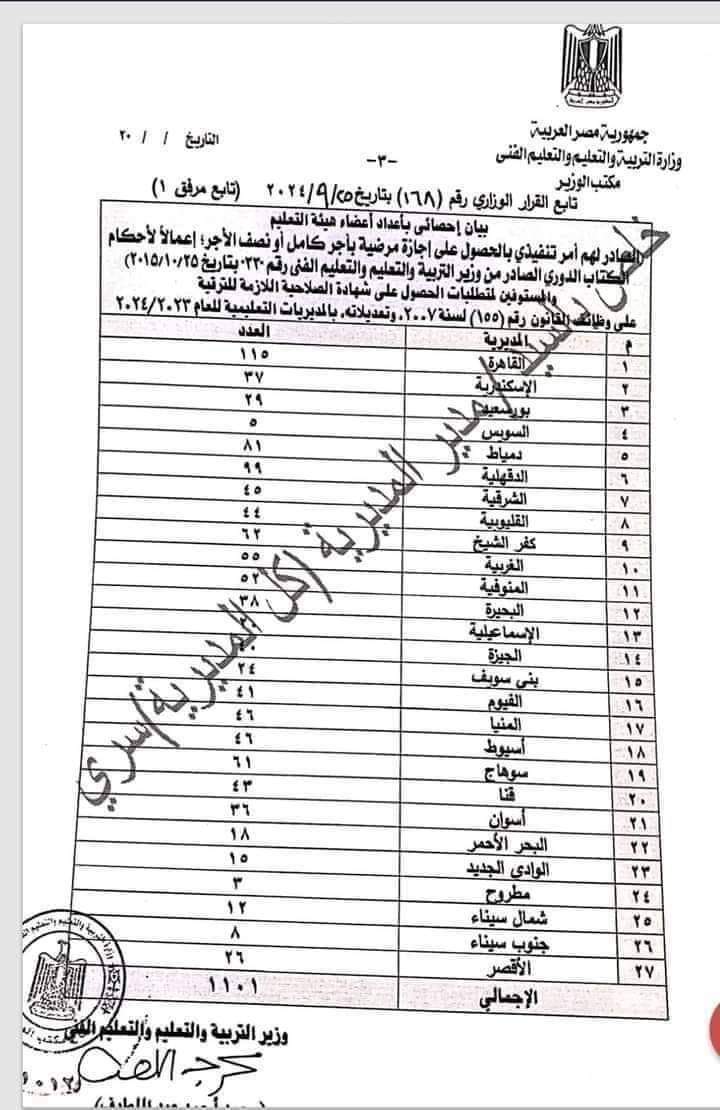 جمهورية مصر العربية
وزارة التربية والتعليم والتعليم الفنى
مكتب الوزير
التاريخ / / ٢٠
-٣-
تابع القرار الوزاري رقم (١٦٨) بتاريخ ٢٠٢٤/٩/٢٥ (تابع مرفق ١)
بيان إحصائى بأعداد أعضاء هيئة التعليم
الصادر لهم أمر تنفيذي بالحصول على إجازة مرضية بأجر كامل أو نصف الأجر؛ إعمالاً لأحكام
الكتاب الدوري الصادر من وزير التربية والتعليم والتعليم الفنى رقم ٢٣٠ بتاريخ ٢٠١٥/١٠/٢٥)
والمستوفين لمتطلبات الحصول على شهادة الصلاحية اللازمة للترقية
على وظائف القانون رقم (١٥٥) لسنة ٢٠٠٧، وتعديلاته، بالمديريات التعليمية للعام ٢٠٢٤/٢٠٢٣
م المديرية العدد
١ القاهرة ١١٥
٢ الإسكندرية ٣٧
٣ بورسعيد ٢٩
٤ السويس ٥
٥ دمياط ٨١
٦ الدقهلية ٩٩
٧ الشرقية ٤٥
٨ القليوبية ٤٤
٩ كفر الشيخ ٦٢
١٠ الغربية ٥٥
١١ المنوفية ٥٢
١٢ البحيرة ٣٨
١٣ الإسماعيلية
١٤ الجيزة
١٥ بنى سويف ٢٤
١٦ الفيوم ٤١
١٧ المنيا ٤٦
١٨ أسيوط ٤٦
١٩ سوهاج ٦١
٢٠ قنا ٤٣
٢١ أسوان ٣٦
٢٢ البحر الأحمر ١٨
٢٣ الوادى الجديد ١٥
٢٤ مطروح ٣
٢٥ شمال سيناء ١٢
٢٦ جنوب سيناء ٨
٢٧ الأقصر ٢٦
الإجمالي ١١٠١
خاص بالسيد/ مدير المديرية (كل المديرية/ سري
وزير التربية والتعليم والتعليم الفنى